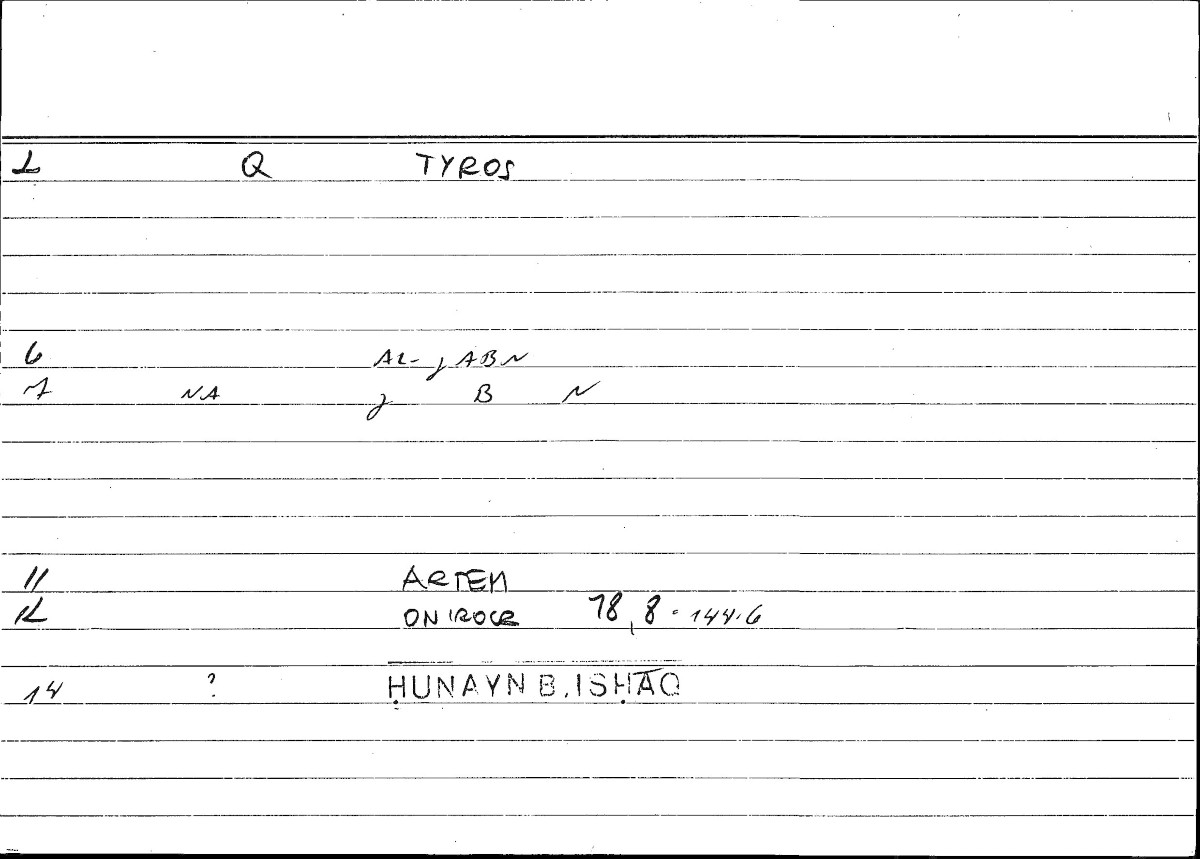 1 Q TYROS
6 AL-ǧABN
7 NA ǧ B N
11 ARTEM
12 ONIROCR 78,8 - 144.6
14 ? ḤUNAYN B. ISḤĀQ